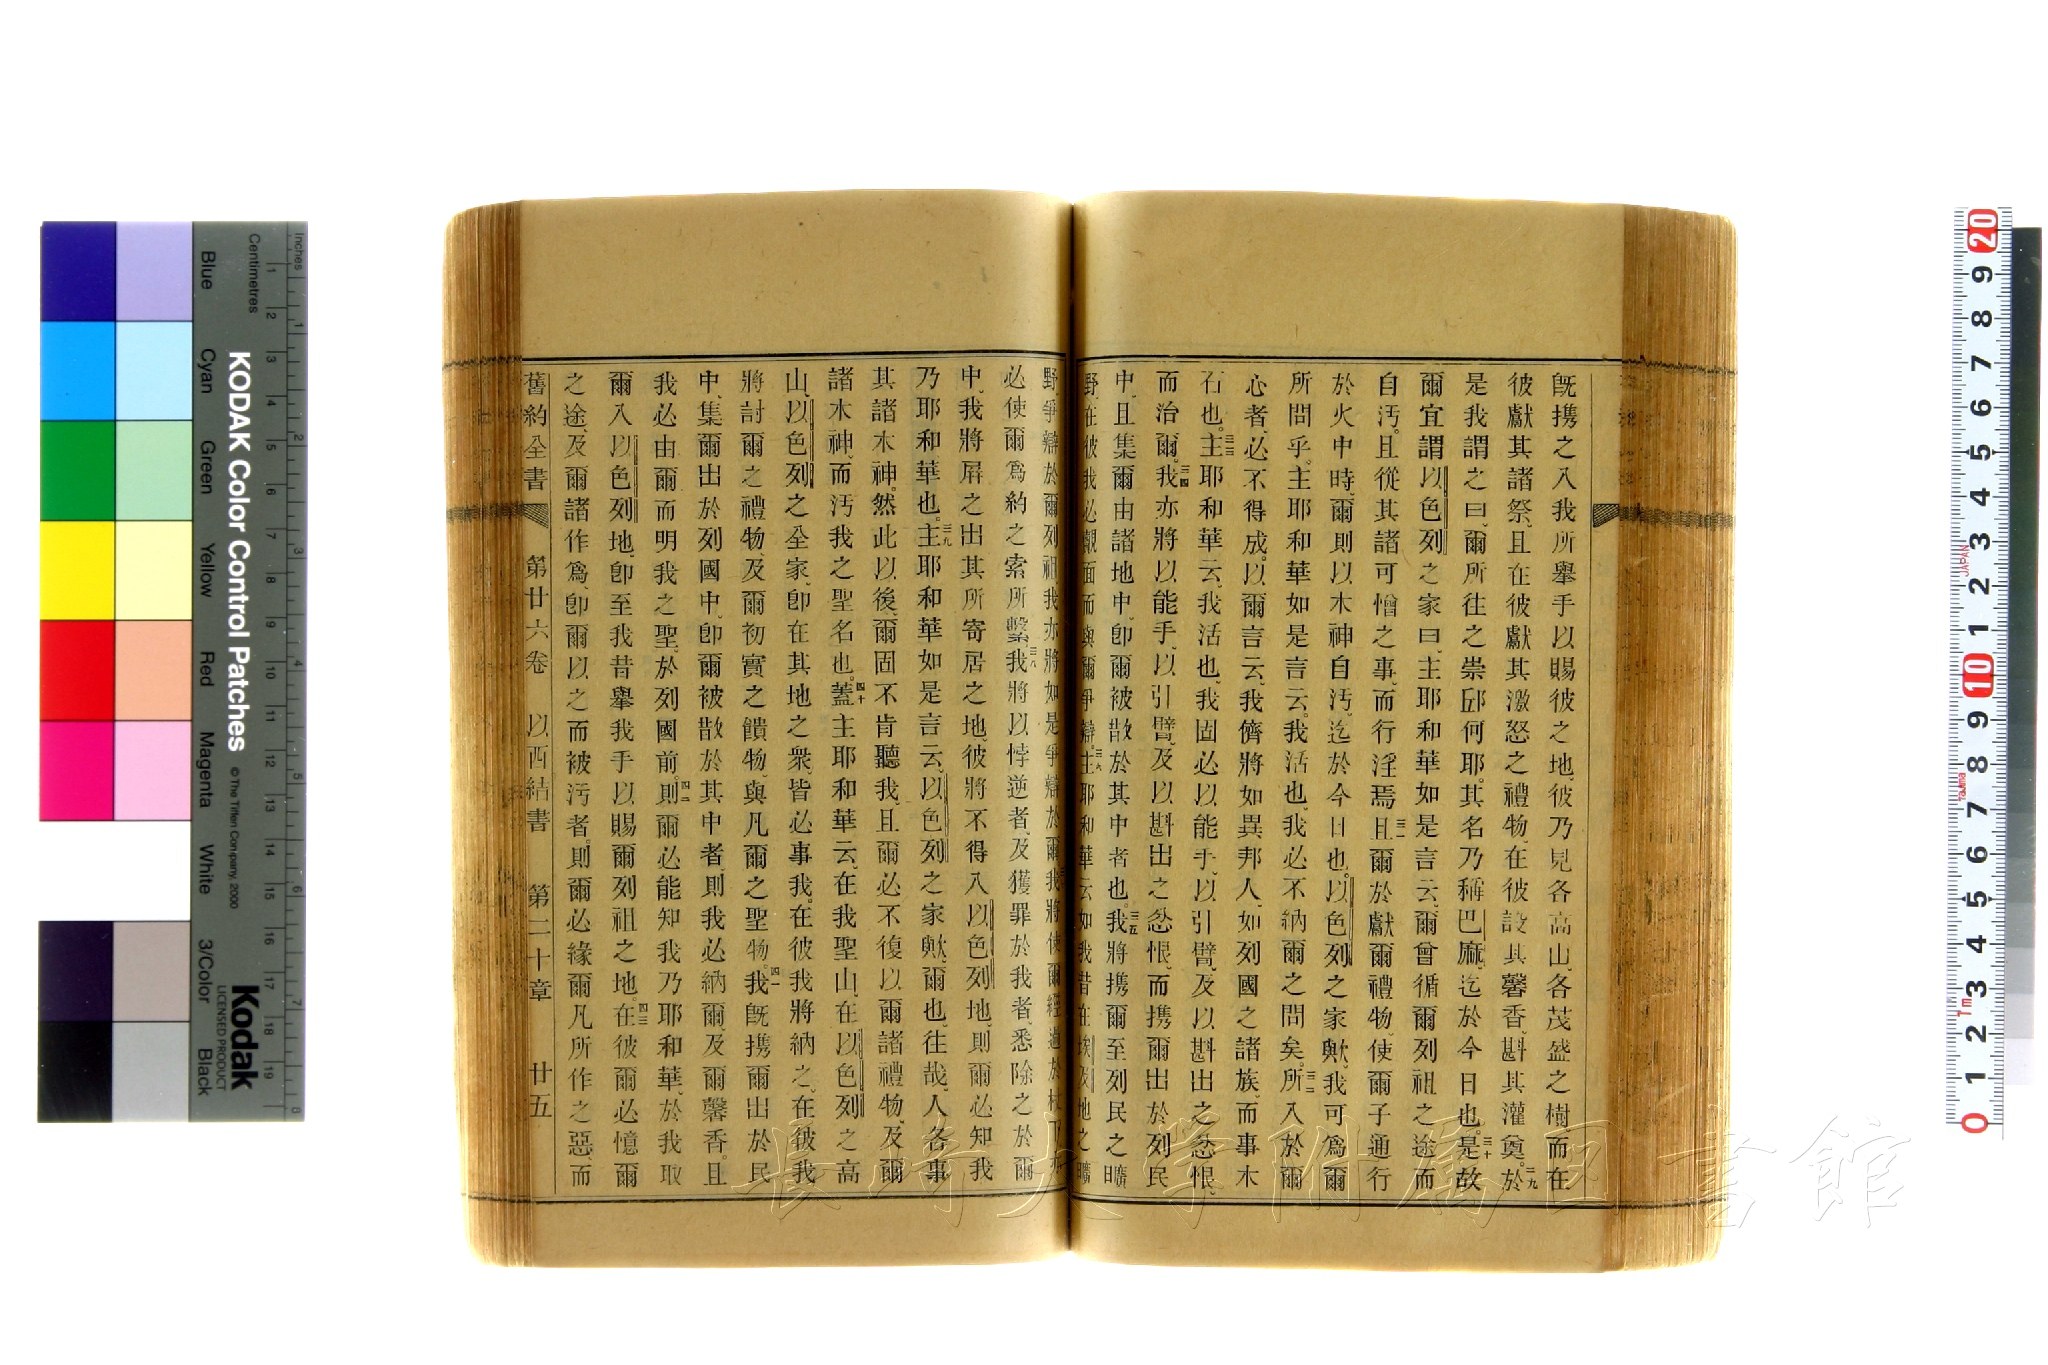 既攜之入我所舉手以賜彼之地、彼乃見各高山、各茂盛之樹而在
彼獻其諸祭、且在彼獻其激怒之禮物、在彼設其馨香、斟其灌奠。二九於
是我謂之曰、爾所往之崇邱何耶。其名乃稱巴麻、迄於今日也。三十是故
爾宜謂以色列之家曰、主耶和華如是言云、爾曾循爾列祖之途而
自汚。且從其諸可憎之事、而行淫焉。三一且爾於獻爾禮物、使爾子通行
於火中時、爾則以木神自汚、迄於今日也。以色列之家歟、我可爲爾
所問乎。主耶和華如是言云、我活也、我必不納爾之問矣。三二所入於爾
心者、必不得成。以爾言云、我儕將如異邦人、如列國之諸族、而事木
石也。三三主耶和華云、我活也、我固必以能手、以引臂、及以斟出之忿恨、
而治爾。三四我亦將以能手、以引臂、及以斟出之忿恨、而攜爾出於列民
中、且集爾由諸地中、卽爾被散於其中者也。三五我將攜爾至列民之曠
野、在彼我必覿面而與爾爭辯。三六主耶和華云、如我昔在埃及地之曠
野、爭辯於爾列祖、我亦將如是爭辯於爾。我將使爾經過於杖下、亦
必使爾爲約之索所繫。三八我將以悖逆者、及獲罪於我者、悉除之於爾
中、我將屛之出其所寄居之地、彼將不得入以色列地、則爾必知我
乃耶和華也。三九主耶和華如是言云、以色列之家歟、爾也、往哉、人各事
其諸木神。然此以後、爾固不肯聽我、且爾必不復以爾諸禮物、及爾
諸木神、而汚我之聖名也。四十蓋主耶和華云、在我聖山、在以色列之高
山、以色列之全家、卽在其地之衆、皆必事我。在彼我將納之、在彼我
將討爾之禮物、及爾初實之饋物、與凡爾之聖物。四一我旣攜爾出於民
中、集爾出於列國中、卽爾被散於其中者、則我必納爾、及爾馨香。且
我必由爾、而明我之聖、於列國前。四二則爾必能知我乃耶和華、於我取
爾入以色列地、卽至我昔舉我手以賜爾列祖之地。四三在彼爾必憶爾
之途、及爾諸作爲、卽爾以之而被汚者。則爾必緣爾凡所作之惡、而
舊約全書 第廿六卷 以西結書 第二十章 廿五
長崎大学附属図書館
KODAK Color Control Patches
© The Tiffen Company, 2000
Kodak
LICENSED PRODUCT
Inches
Centimetres
Blue
Cyan
Green
Yellow
Red
Magenta
White
3/Color
Black
1 2 3 4 5 6 7 8 9 10 11 12 13 14 15 16 17 18 19
1 2 3 4 5 6 7 8
20 9 8 7 6 5 4 3 2 1 10 9 8 7 6 5 4 3 2 1 0
JAPAN
Tajima
1m